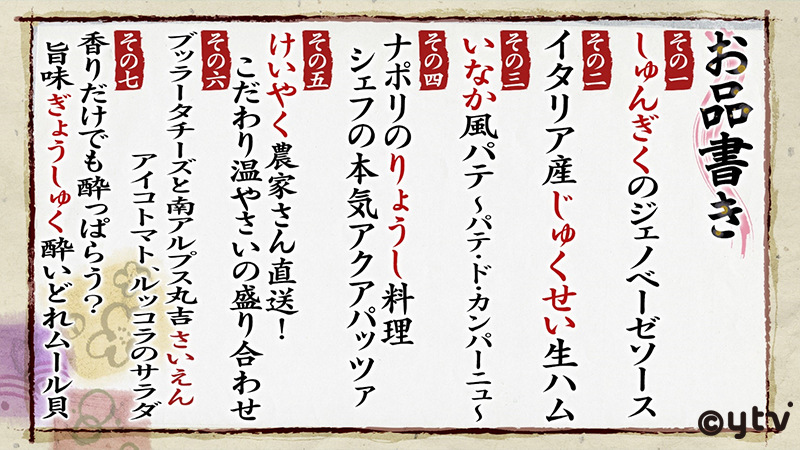 お品書き
その一
しゅんぎくのジェノベーゼソース
その二
イタリア産じゅくせい生ハム
その三
いなか風パテ～パテ・ド・カンパーニュ～
その四
ナポリのりょうし料理
シェフの本気アクアパッツァ
その五
けいやく農家さん直送！
こだわり温やさいの盛り合わせ
その六
ブッラータチーズと南アルプス丸吉さいえん
アイコトマト、ルッコラのサラダ
その七
香りだけでも酔っぱらう？
旨味ぎょうしゅく酔いどれムール貝
©ytv